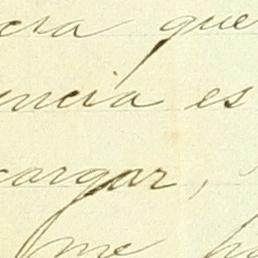 cra que
encia es
cargar,
me ha